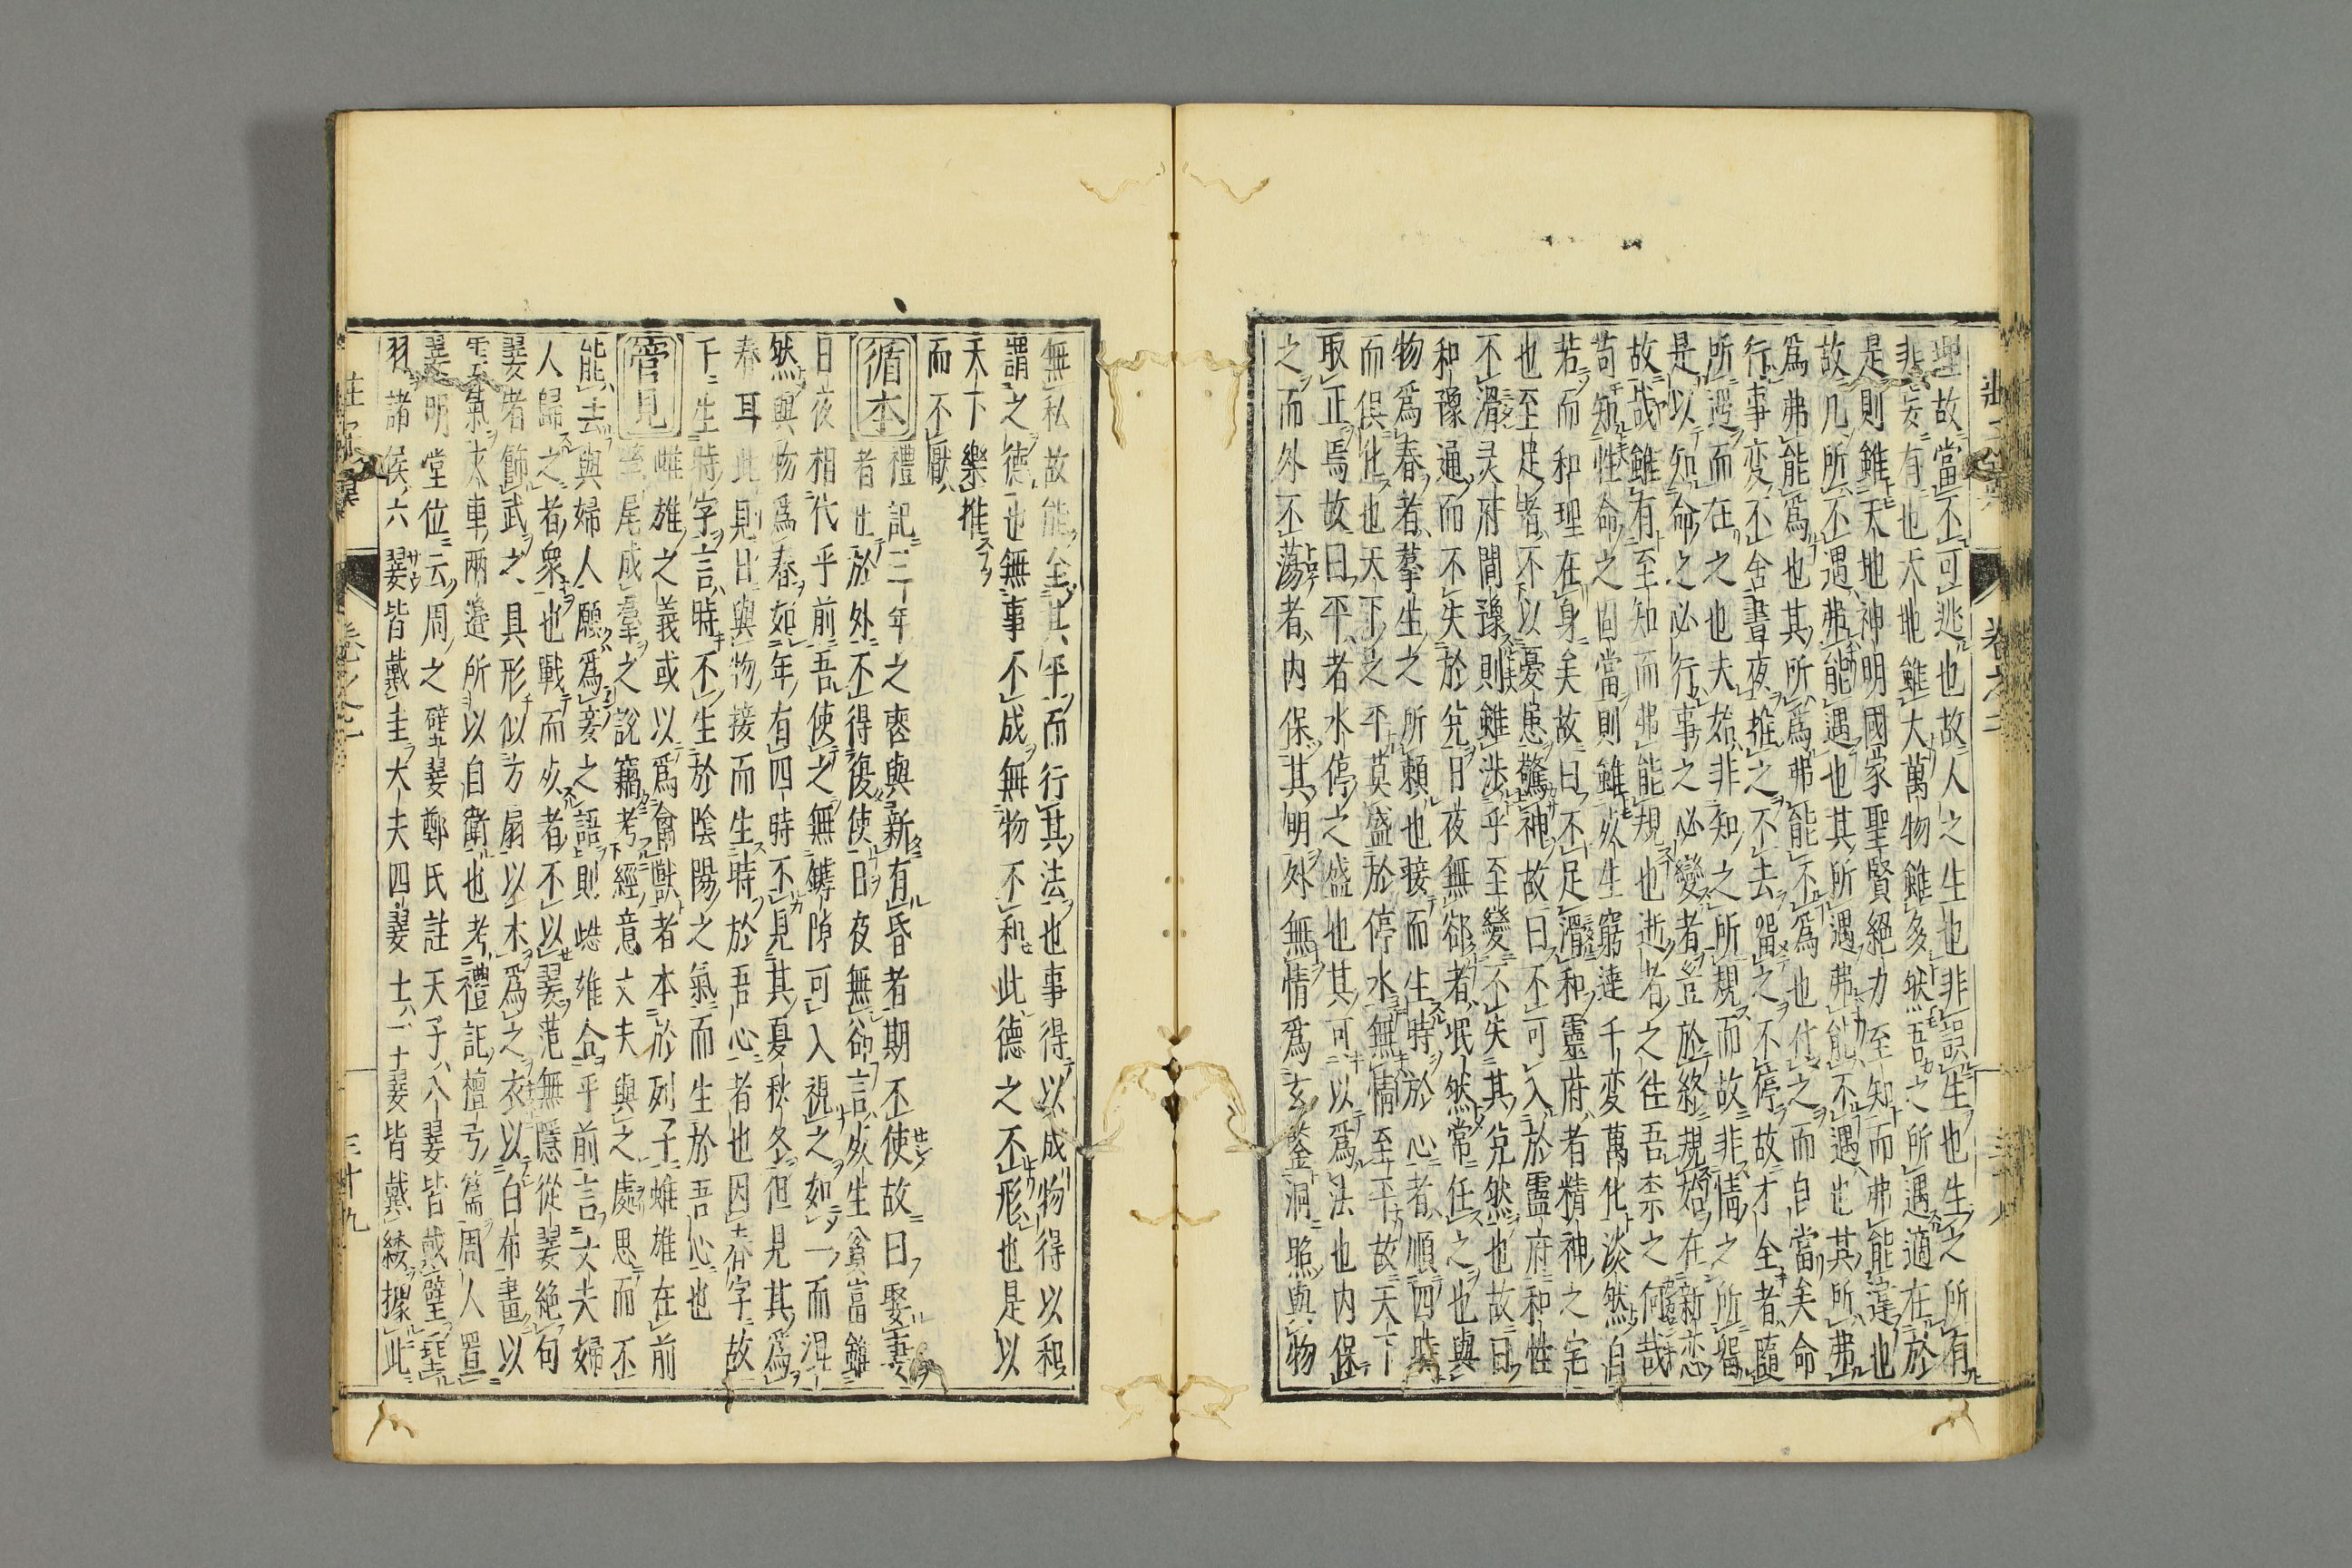 理故當不可逃也故人之生也非誤生也生之所有
非妄有也天地雖大萬物雖多然吾之所遇適在於
是則雖天地神明國家聖賢絕力至知而弗能違也
故凢所不遇弗能遇也其所遇弗能不遇也其所弗
爲弗能爲也其所爲弗能不爲也付之而自當矣命
行事変不舍晝夜推之不去留之不停故才全者隨
所遇而在之也夫始非知之所規而故非情之所留
是以知命之必行事之必變者豈於終規始在新恋
故哉雖有至知而弗能規也逝者之往吾柰之何哉
苟知性命之固當則雖死生窮達千変萬化淡然自
若而和理在身矣故曰不足滑和靈府者精神之宅
也至足者不以憂患驚神故曰不可入於靈府和性
不滑灵府間豫則雖涉乎至變不失其兌然也故曰
和豫通而不失於兌日夜無郤者泯然常任之也與
物爲春者羣生之所賴也接而生時於心者順四時
而俱化也天下之平莫盛於停水無情至平故天下
取正焉故曰平者水停之盛也其可以爲法也内保
之而外不蕩者内保其明外無情爲玄鑒洞照與物
無私故能全其平而行其法也事得以成物得以和
謂之德也無事不成無物不和此德之不形也是以
天下樂推
而不厭
循本
禮記三年之喪與新有昏者期不使故曰娶妻
者止於外不得復使日夜無郤言死生貧富雖
日夜相代乎前吾使之無罅隙可入視之如一而渾
然與物爲春如年有四時不見其夏秋冬但見其爲
春耳此見日與物接而生時於吾心者也因春字故
下生時字言時不生於陰陽之氣而生於吾心也
管見
雌雄之義或以爲禽獸者本於列子雌雄在前
孳尾成羣之說竊考經意丈夫與之處思而不
能去與婦人願爲妾之語則雌雄合乎前言丈夫婦
人歸之者衆也戰而死者不以翣范無隱從翣絕句
翣者飾武之具形似方扇以木爲之衣以白布畫以
雲氣夾車兩邊所以自衛也考禮記檀弓篇周人置
翣明堂位云周之璧翣鄭氏註天子八翣皆戴璧垂
羽諸侯六翣皆戴圭大夫四翣士二十翣皆戴綏據此
卷之二
三十九